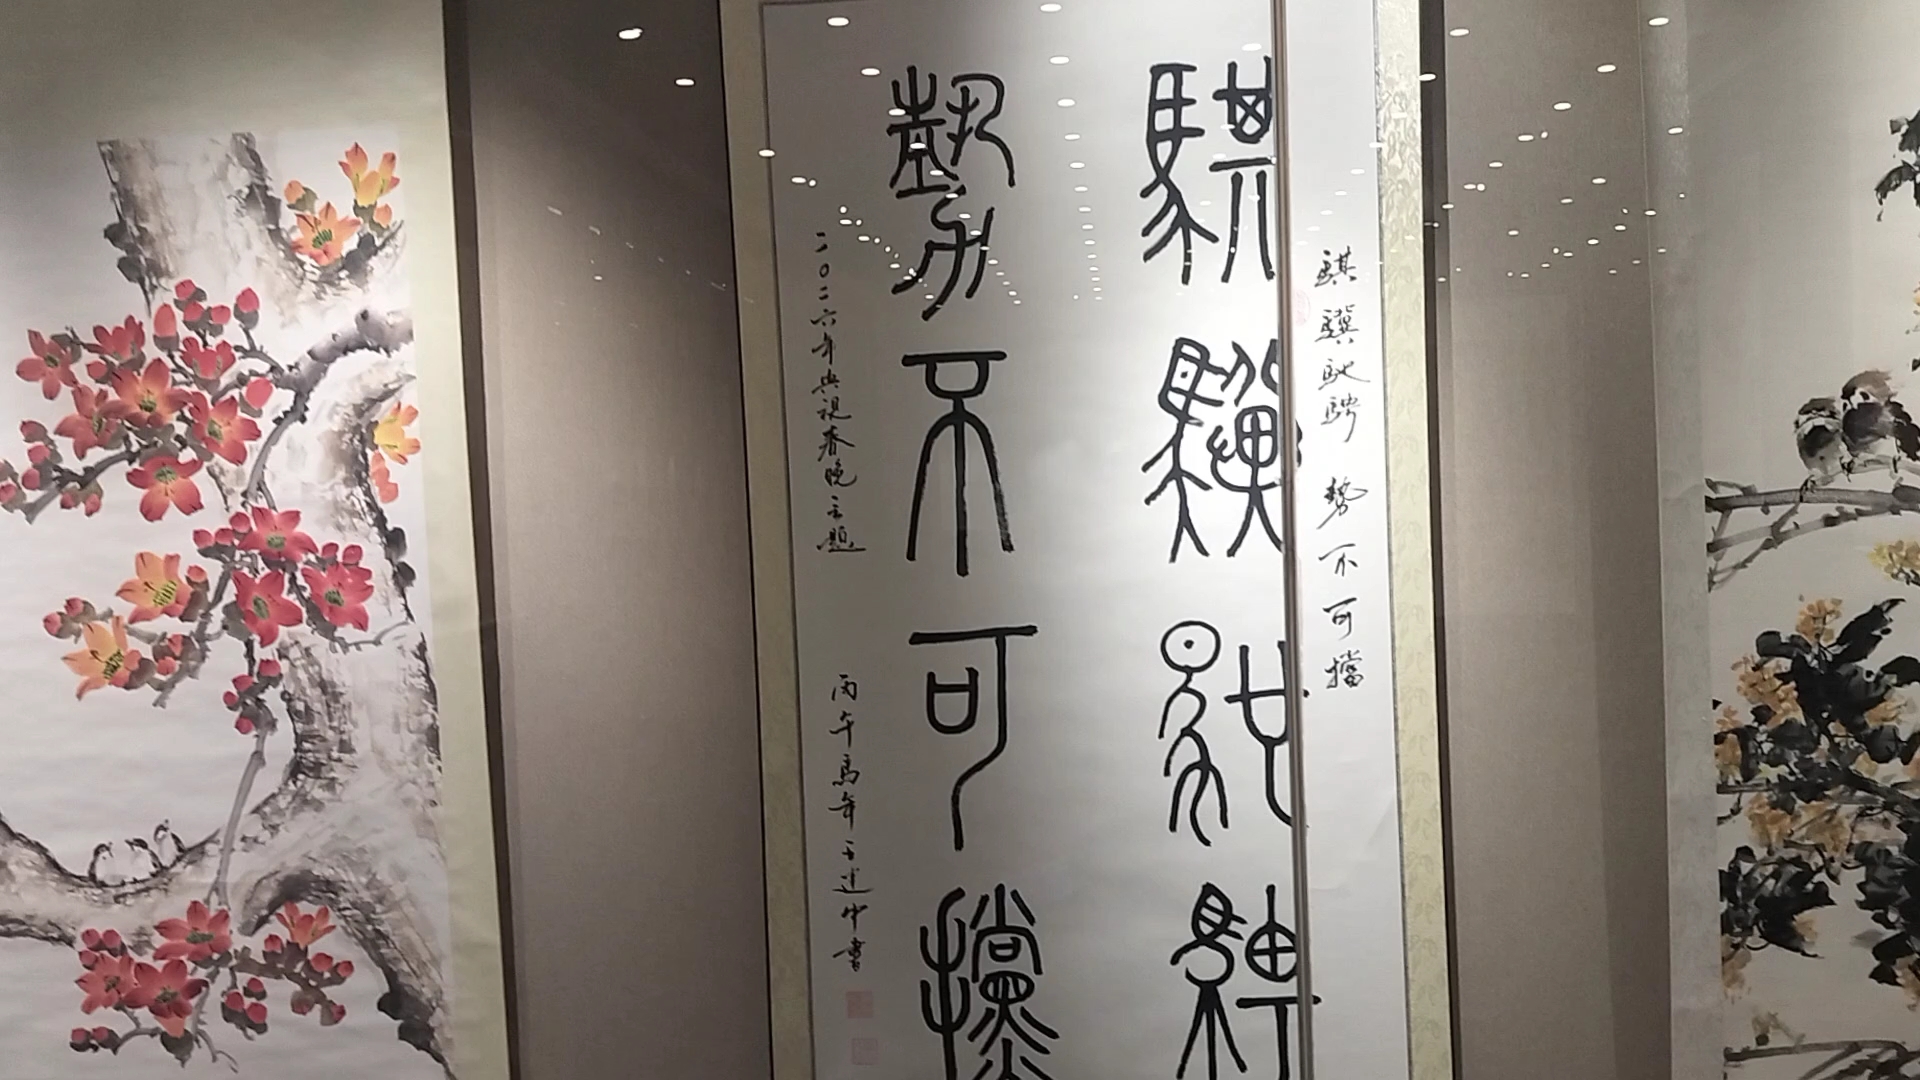 騏驥馳騁 势不可擋
騏驥馳騁
勢不可擋
二〇二六年央視春晚主题
丙午馬年于中書